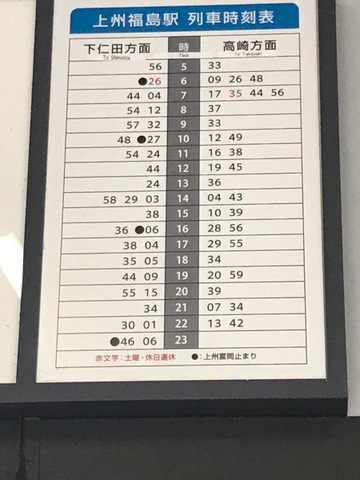 上州福島駅 列車時刻表
下仁田方面 時 高崎方面
To Shimonita Time To Takasaki
56 5 33
●26 6 09 26 48
44 04 7 17 35 44 56
54 12 8 37
57 32 9 33
48 ●27 10 12 49
54 24 11 16 38
44 12 19 45
24 13 36
58 29 03 14 04 43
38 15 10 39
36 ●06 16 28 56
38 04 17 29 55
35 05 18 34
44 09 19 20 59
55 15 20 39
34 21 07 34
30 01 22 13 42
●46 06 23
赤文字:土曜・休日運休 ●:上州富岡止まり